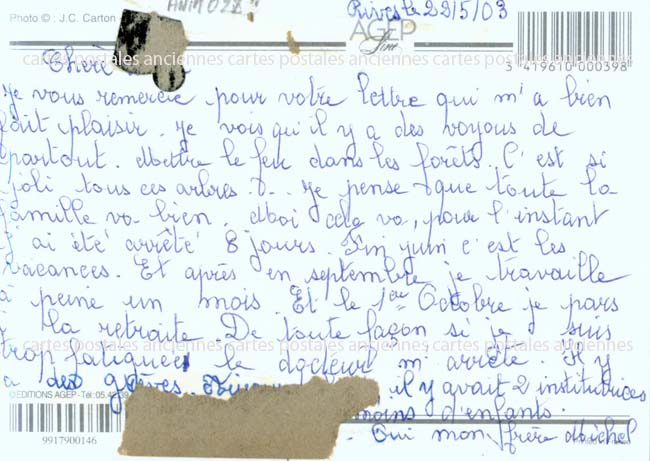 ANIM 028
Photo © : J.C. Carton
Rives le 22/5/03
AGEP
3 419610 000398
cartes postales anciennes cartes postales anciennes cartes postales anciennes
Chéri
je vous remercie pour votre lettre qui m'a bien
fait plaisir. je vois qu'il y a des voyous de
partout. Mettre le feu dans les forêts. C'est si
joli tous ces arbres. je pense que toute la
famille va bien. Moi cela va, pour l'instant
j'ai été arrêté 8 jours. Fin juin c'est les
vacances. Et après en septembre je travaille
à peine un mois. Et le 1ère Octobre je pars
la retraite. De toute façon si je suis
cartes postales anciennes cartes postales anciennes cartes postales anciennes
trop fatiguée le docteur m'arrête. Il y
a des grèves. il y avait 2 institutrices
© EDITIONS AGEP - Tél : 05.42
moins d'enfants.
9917900146
Oui mon frère Michel